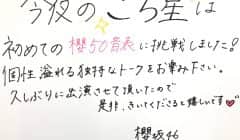 今夜のごろ星は
初めての櫻50音表に挑戦しました!
個性溢れる独特なトークをお楽み下さい。
久しぶりに出演させて頂いたので
是非、きいてくださると嬉しいです♡
櫻坂46